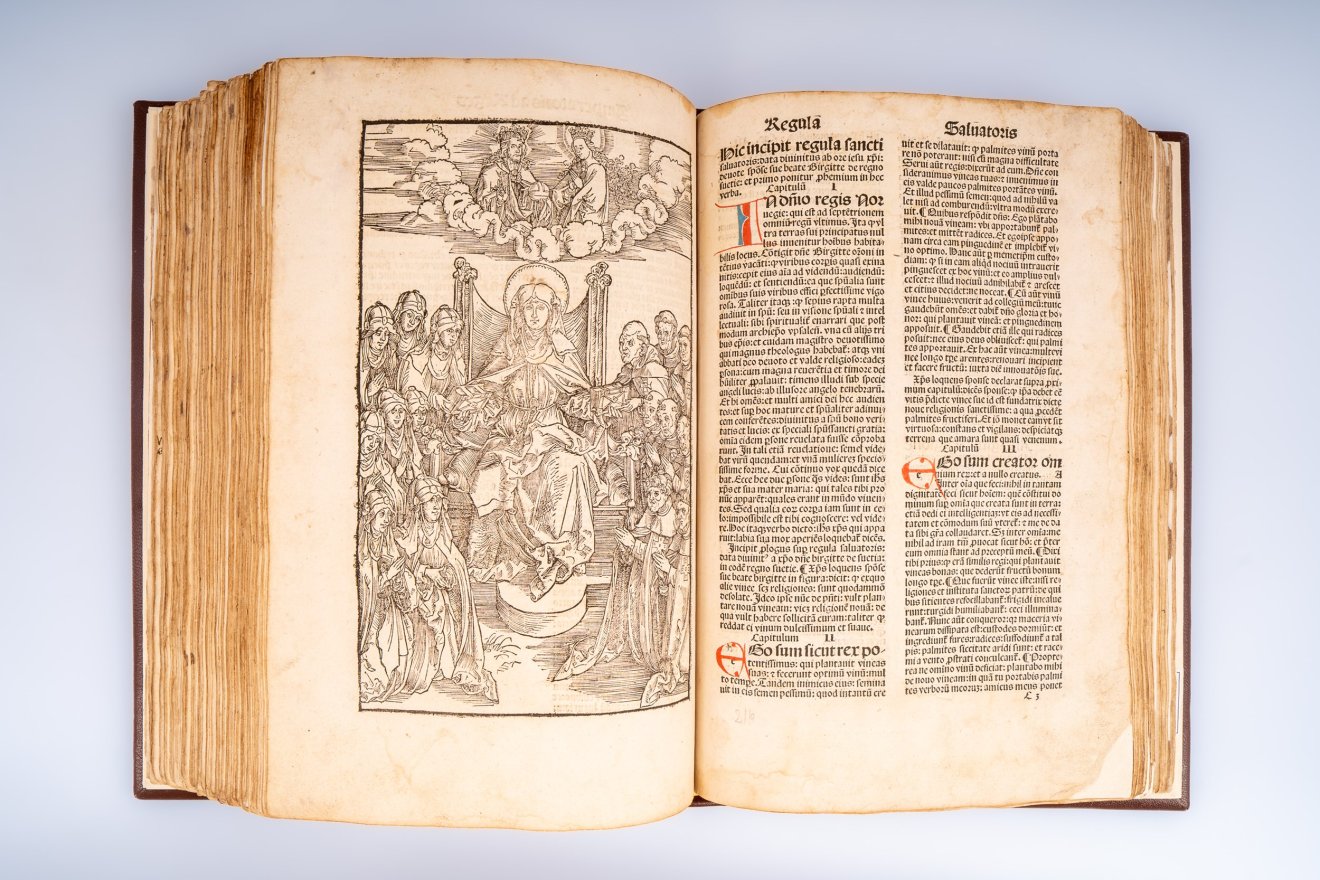 Regulā
Hic incipit regula sancti
saluatoris: data diuinitus ab ore iesu xp̄i:
deuote spōse sue beate Birgitte de regno
suetie: et primo ponitur ꝓhemium in hec
verba. Capitulū I
IN dn̄io regis Nor
uegie: qui est ad septētrionem
omniū regū vltimus. Ita ꝙ vl
tra terras sui principatus nul
lus inuenitur hoībus habita
bilis locus. Cōtigit dn̄e Birgitte or̄oni in
tētius vacāti: ꝙ viribus corꝑis quasi exina
nitis: cepit eius aīa ad videndū: audiendū:
loquēdū: et sentiendū: ea que spūalia sunt
omnibus suis viribus effici ꝑfectissime vigo
rosa. Taliter itaqꝫ: ꝙ sepius rapta multa
audiuit in spū: seu in visione spūali ⁊ intel
lectuali: sibi spiritualit̄ enarrari que post
modum archiep̄o vpsaleñ. vna cū alijs tri
bus ep̄is: et cuidam magistro deuotissimo
qui magnus theologus habebat̄: atqꝫ vni
abbati deo deuoto et valde religioso: eadeꝫ
ꝑsona: cum magna reuerētia et timore dei
hūiliter ꝓpalauit: timens illudi sub specie
angeli lucis: ab illusore angelo tenebrarū.
Et hi omēs: et multi amici dei hec audien
tes: et suꝑ hoc mature et spūaliter adinui-
cem cōferētes: diuinitus a spū bono veri
tatis et lucis: ex speciali spūssancti gratia:
omīa eidem ꝑsone reuelata fuisse cōproba
runt. In tali etiā reuelatione: semel vide-
bat virū quendam: et vnā mulieres specio-
sissime forme. Cui cōtinuo vox quedā dice
bat. Ecce hee due ꝑsone q̄s vides: sunt ih̄s
xp̄s et sua mater maria: qui tales tibi pro
nūc apparēt: quales erant in mūdo viuen-
tes. Sed qualia eoꝝ corpa iam sunt in ce-
lo: impossibile est tibi cognoscere: vel vide-
re. Hoc itaqꝫ verbo dicto: ih̄s xp̄s qui appa
ruit: labia sua mox aperiēs loquebat̄ dicēs.
Incipit ꝓlogus suꝑ regula saluatoris:
data diuinit⁹ a xp̄o dn̄e birgitte de suetia:
in eodē regno suetie. ¶ Xp̄s loquens spōse
sue beate birgitte in figura: dicit: ꝙ equo
alie vinee scꝫ religiones: sunt quodāmō
desolate. Ideo ipse nūc de pn̄ti: vult plan-
tare nouā vineam: viꝫ religionē nouā: de
qua vult habere sollicitā curam: taliter ꝙ
reddat ei vinum dulcissimum et suaue.
Capitulum II
EGo sum sicut rex po-
tentissimus: qui plantauit vineas
bonas: ⁊ fecerunt optimū vinū: mul
to tempe. Tandem inimicus eius: semina
uit in eis semen pessimū: quod intantū cre
216
Saluatoris
uit et se dilatauit: ꝙ palmites vinū porta
re nō poterant: nisi cū magna difficultate
Serui aūt regis: dixerūt ad eum. Dn̄e con
siderauimus vineas tuas: ⁊ inuenimus in
eis valde paucos palmites portātes vinū.
Et illud pessimū semen: quod ad nihilū va
let nisi ad comburendū: vltra modū excre-
uit. ¶ Quibus respōdit dn̄s: Ego plātabo
mihi nouā vineam: vbi apportabunt̄ pal-
mites: et mittēt radices. Et egoipse appo-
nam circa eam pinguedinē et implebit̄ vi-
no optimo. Hanc aūt ꝑ memetip̄m custo-
diam: ꝙ si in eam aliqd̄ nociuū intrauerit
pinguescet ex hoc vinū: et eo amplius dul-
cescet: ⁊ illud nociuū adnihilabit̄ ⁊ arescet
et citius decidet: ne noceat. ¶ Cū aūt vinū
vinee huius: venerit ad collegiū meū: tunc
gaudebūt omēs: et dabūt dn̄o gloriā et ho-
nor: qui plantauit vineā: et pinguedinem
apposuit. ¶ Gaudebit etiā ille qui radices
posuit: nec eius deus obliuiscet̄: qui palmi
tes apportauit. Ex hac aūt vinea: multe vi
nee longo tꝑe arentes: renouari incipient
et facere fructū: iuxta diē innouatiōis sue.
Xp̄s loquens sponse declarat supra ꝓxi-
mum capitulū: dicēs sponse: ꝙ ip̄a debet cē
vitis p̄dicte vinee sue id est fundatrix dicte
noue religionis sanctissime: a qua ꝓcedēt
palmites fructiferi. Et iō monet eam vt sit
virtuosa: constans et vigilans: despiciatqꝫ
terrena que amara sunt quasi venenum.
Capitulū III
EGo sum creator om
nium rex: et a nullo creatus. A
Inter oīa que feci: nihil in tantam
dignitatē feci sicut hoīem: quē cōstitui do
minum suꝑ omīa que creata sunt in terra:
etiā dedi ei intelligentiaꝫ: vt eis ad necessi-
tatem et cōmodum suū vteret̄: ⁊ me de da
ta sibi gr̄a collaudaret. Sꝫ inter omīa: me
nihil ad iram tm̄ ꝓuocat sicut hō: et p̄ter
eum omnia stant ad preceptū meū. ¶ Dixi
tibi prius: ꝙ erā similis regi: qui plantauit
vineas bonas: que dederūt fructū bonum
longo tꝑe. ¶ Que fuerūt vinee iste: nisi re-
ligiones et instituta sanctoꝝ patrū: de qui
bus sitientes refocillabant̄: frigidi incalue
runt: turgidi humiliabant̄: ceci illumina-
bant̄. Nunc aūt conqueror: ꝙ maceria vi-
nearum dissipata est: custodes dormiūt: et
ingrediunt̄ fures: radices: suffodiunt̄ a tal
pis: palmites siccitate aridi sunt: et race-
mi a vento ꝓstrati conculcant̄. ¶ Propte-
rea ne omnino vinū deficiat: plantabo mihi
de nouo vineam: in quā tu portabis palmi
tes verborū meoruꝫ: amicus meus ponet